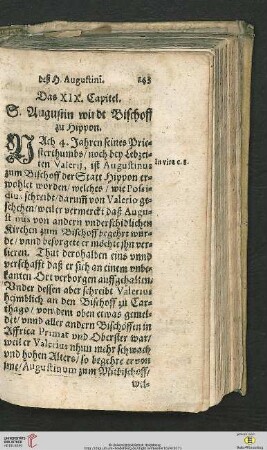 deß H. Augustini. 243
Das XIX. Capitel.
S. Augustin wirdt Bischoff
zu Hippon.
NAch 4. Jahren seines Prie-
sterthumbs / noch bey Lebzei-
ten Valerij, ist Augustinus
zum Bischoff der Statt Hippon er-
wöhlet worden / welches / wie Possi-
dius schreibt / darumb von Valerio ge-
schehen / weil er vermerckt daß Augu-
stinus von andern underschidlichen
Kirchen zum Bischoff begehrt wur-
de / vnnd besorgete er möchte jhn ver-
lieren. That derohalben eins vnnd
verschafft daß er sich an einem vnbe-
kanten Ort verborgen auffgehalten.
Vnder dessen aber schreibt Valerius
heimblich an den Bischoff zu Car-
thago / von dem oben etwas gemel-
det / vnnd aller andern Bischöffen in
Affrica Primat vnd Oberster war /
weil er Valerius nhun mehr schwach
vnd hohen Alters / so begehre er von
jme / Augustinum zum Mitbischoff /
wel-
In vita c. 8.